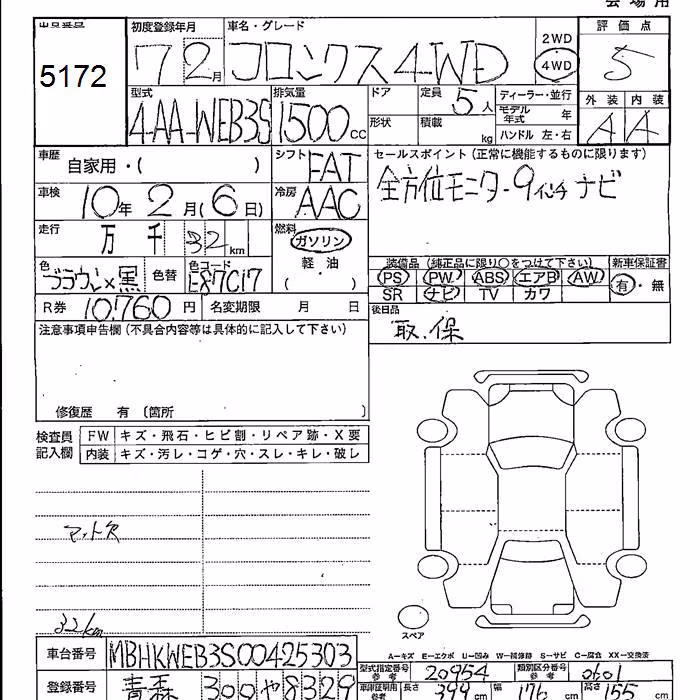 会場用
出品番号 初度登録年月 車名・グレード 評価点
5172 7 2月 フロンクス 4WD 2WD 4WD 5
型式 排気量 ドア 定員 5人 ディーラー・並行 外装 内装
4AA-WEB3S 1500CC 形状 積載 kg モデル年式 年 ハンドル 左・右 A A
車歴 自家用・( ) シフト FAT セールスポイント(正常に機能するものに限ります)
車検 10年 2月(6日) 冷房 AAC 全方位モニター 9インチ ナビ
走行 万 千 32 km 燃料 ガソリン
軽・油
( )
色 ブラウン×黒 色替 色コード E87C17 装備品(純正品に限り○をつけて下さい) 新車保証書
PS PW ABS エアB AW 有・無
SR ナビ TV カワ
R券 10,760円 名変期限 月 日 後日品
取.保
注意事項申告欄(不具合内容等は具体的に記入して下さい)
修復歴 有〔箇所 〕
検査員 FW キズ・飛石・ヒビ割・リペア跡・X要
記入欄 内装 キズ・汚レ・コゲ・穴・スレ・キレ・破レ
マット欠
32km
スペア
A=キズ E=エクボ U=凹み W=補修跡 S=サビ C=腐食 XX=交換済
車台番号 MBHKWEB3S00425303 型式指定番号 参考 20954 類別区分番号 参考 0601
登録番号 青森 300 や 8329 車検証明用 参考 長さ 399cm 幅 176cm 高さ 155cm